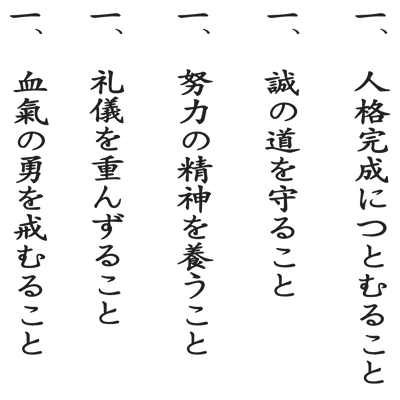 一、人格完成につとむること
一、誠の道を守ること
一、努力の精神を養うこと
一、礼儀を重んずること
一、血氣の勇を戒むること